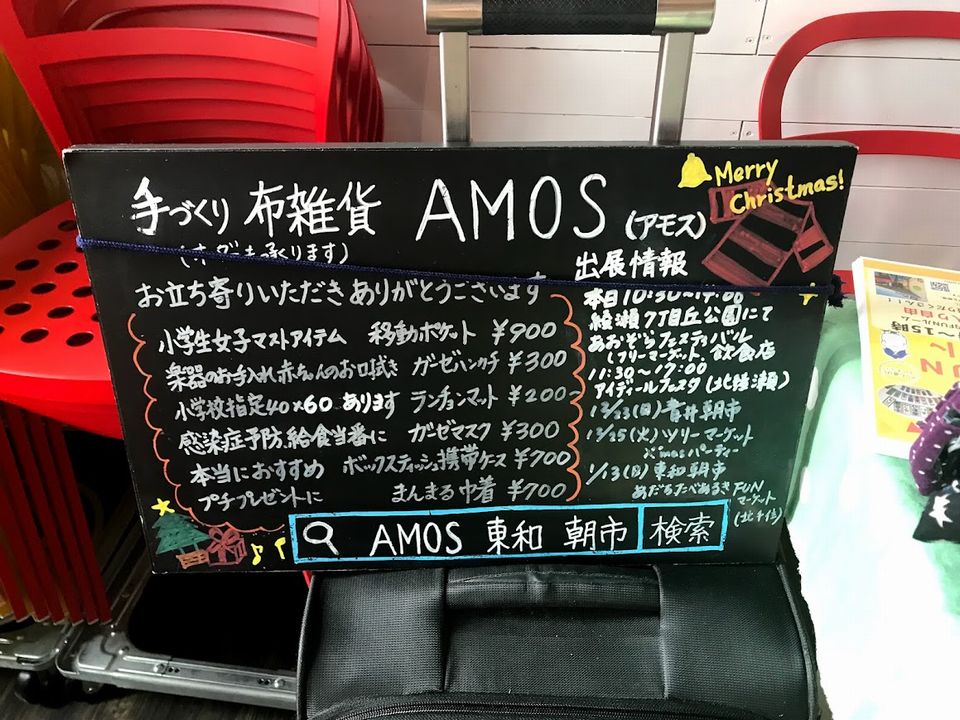 手づくり 布雑貨 AMOS (アモス)
Merry
Christmas!
承ります)
お立ち寄りいただきありがとうございます
小学生女子マストアイテム 移動ポケット ¥900
楽器のお手入れ赤ちゃんのお口拭き ガーゼハンカチ ¥300
小学校指定40×60あります ランチョンマット ¥200-
感染症予防給食当番に ガーゼマスク ¥300
本当におすすめ ボックスティッシュ携帯ケース ¥700
プチプレゼントに まんまる巾着 ¥700
出展情報
本日10:30~
綾瀬7丁目丘公園にて
あおぞらフェスティバル
(フリーマーケット、飲食店
11:30~17:00
アイディールフェスタ(北綾瀬)
12/23(日)青井朝市
12/25(火)ツリーマーケット
X'masパーティー
1/13(日)東和朝市
あだちたべあるき FUN
マーケット
(北千住)
AMOS 東和 朝市 検索
~15時